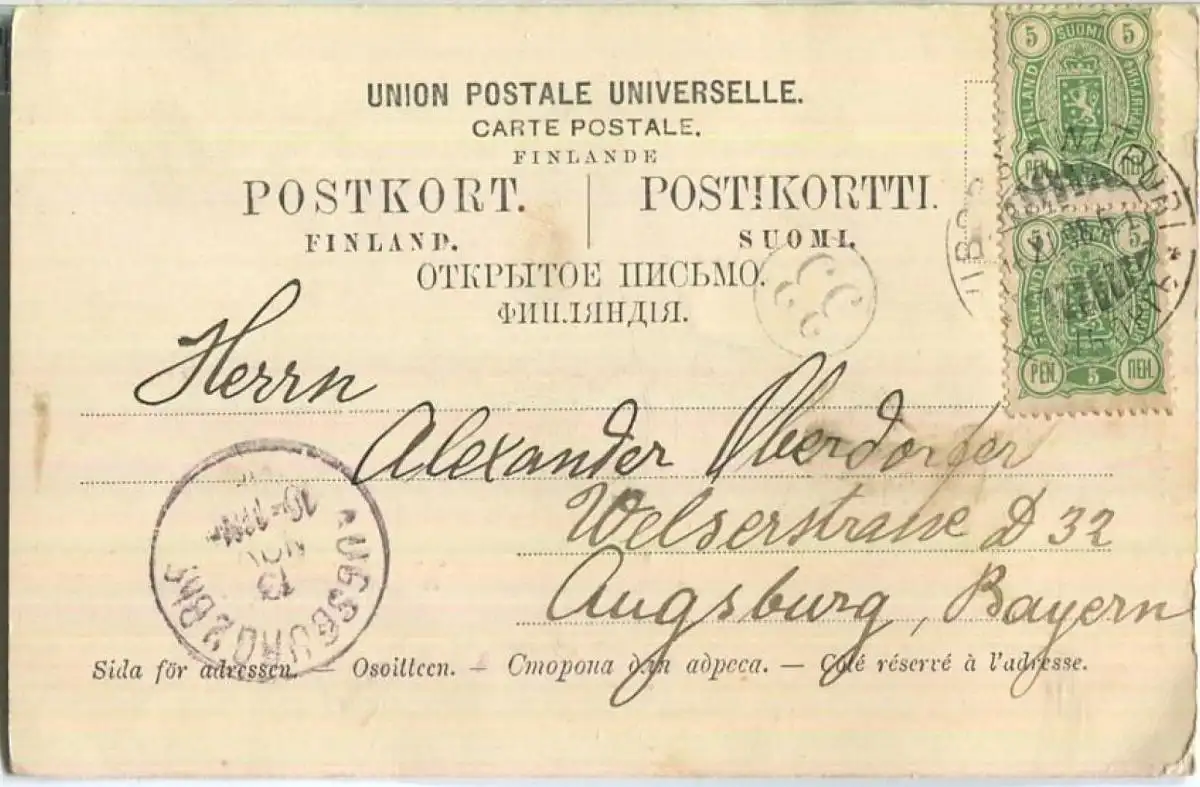 UNION POSTALE UNIVERSELLE.
CARTE POSTALE.
FINLANDE
POSTKORT. | POSTIKORTTI.
FINLAND. SUOMI.
ОТКРЫТОЕ ПИСЬМО.
ФИНЛЯНДІЯ.
5 SUOMI 5
FINLAND ФИНЛЯНДІЯ
PEN.
5 5
PEN. 5 ПЕН.
Herrn
Alexander Oberdorfer
Welserstrasse D 32
Augsburg, Bayern
AUGSBURG 2 Bhf
13
NOV
Sida för adressen. — Osoitteen. — Сторона для адреса. — Coté réservé à l'adresse.